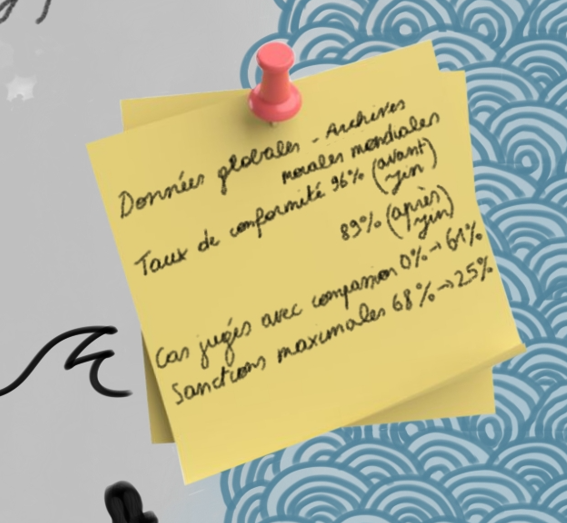 Données globales - Archives
morales mondiales
Taux de conformité 96% (avant
Jin)
89% (après
Jin)
Cas jugés avec compassion 0% → 61%
Sanctions maximales 68% → 25%